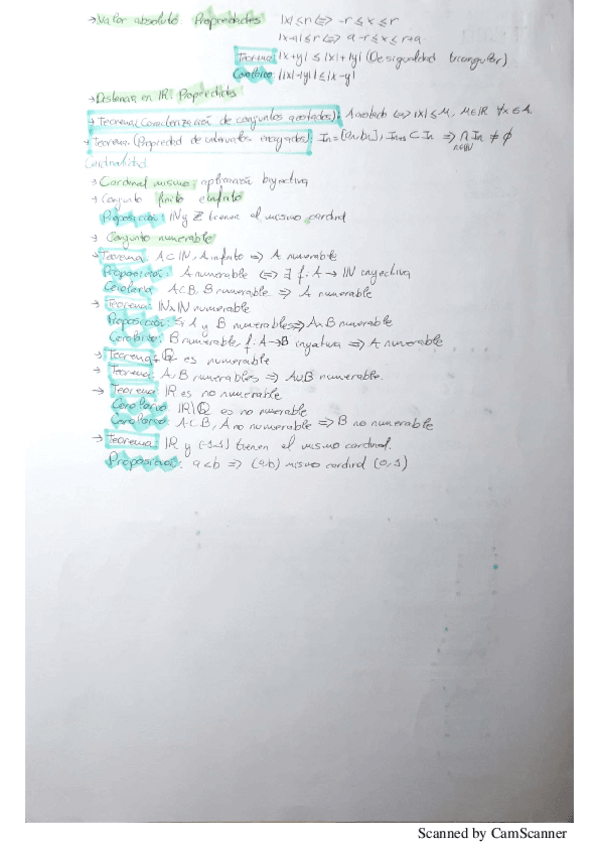 →Valor absoluto Propiedades |x|≤r⇔ -r≤x≤r
|x-a|≤r⇔ a-r≤x≤r+a.
Teorema: |x+y| ≤ |x|+|y| (Desigualdad triangular)
Corolario: ||x|-|y||≤|x-y|
→Distancia en IR: Propiedades
→Teorema (Caracterización de conjuntos acotados): A acotado ⇔ |x|≤M, M∈IR ∀x∈A.
→Teorema (Propiedad de intervalos encajados): In=[an,bn], In+1⊂In ⇒ ∩In ≠ ∅
n∈IN
Cardinalidad
→Cardinal mismo: aplicación biyectiva
→Conjunto finito e infinito
Proposición: IN y Z tienen el mismo cardinal
→ Conjunto numerable
→Teorema: A⊂IN, A infinito ⇒ A numerable
Proposición: A numerable ⇔ ∃ f: A→IN inyectiva
Corolario: A⊂B, B numerable ⇒ A numerable
→Teorema: INxIN numerable
Proposición: Si A y B numerables⇒AxB numerable
Corolario: B numerable, f: A→B inyectiva ⇒ A numerable
→Teorema: Q es numerable
→ Teorema: A,B numerables ⇒ A∪B numerable.
→ Teorema: IR es no numerable
Corolario: IR\Q es no numerable
Corolario: A⊂B, A no numerable ⇒B no numerable
→Teorema: IR y (-1,1) tienen el mismo cardinal.
Proposición: a<b ⇒ (a,b) mismo cardinal (0,1)
Scanned by CamScanner